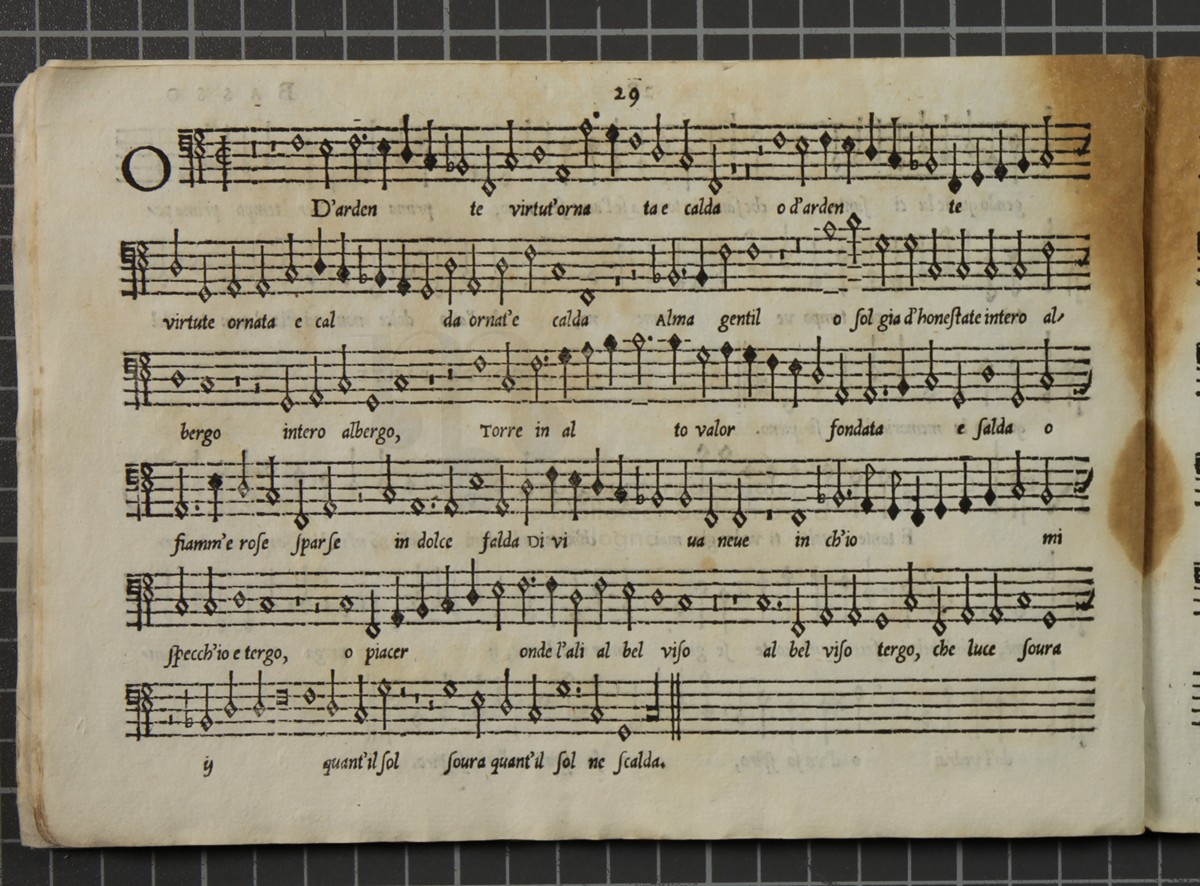 29
O
D'arden te virtut'orna ta e calda o d'arden te
virtute ornata e cal da ornat'e calda Alma gentil o ſol gia d'honeſtate intero al,
bergo intero albergo, Torre in al to valor fondata e ſalda o
fiamm'e roſe ſparſe in dolce falda Di vi ua neue in ch'io mi
ſpecch'io e tergo, o piacer onde l'ali al bel viſo al bel viſo tergo, che luce ſoura
ij quant'il ſol ſoura quant'il ſol ne ſcalda.